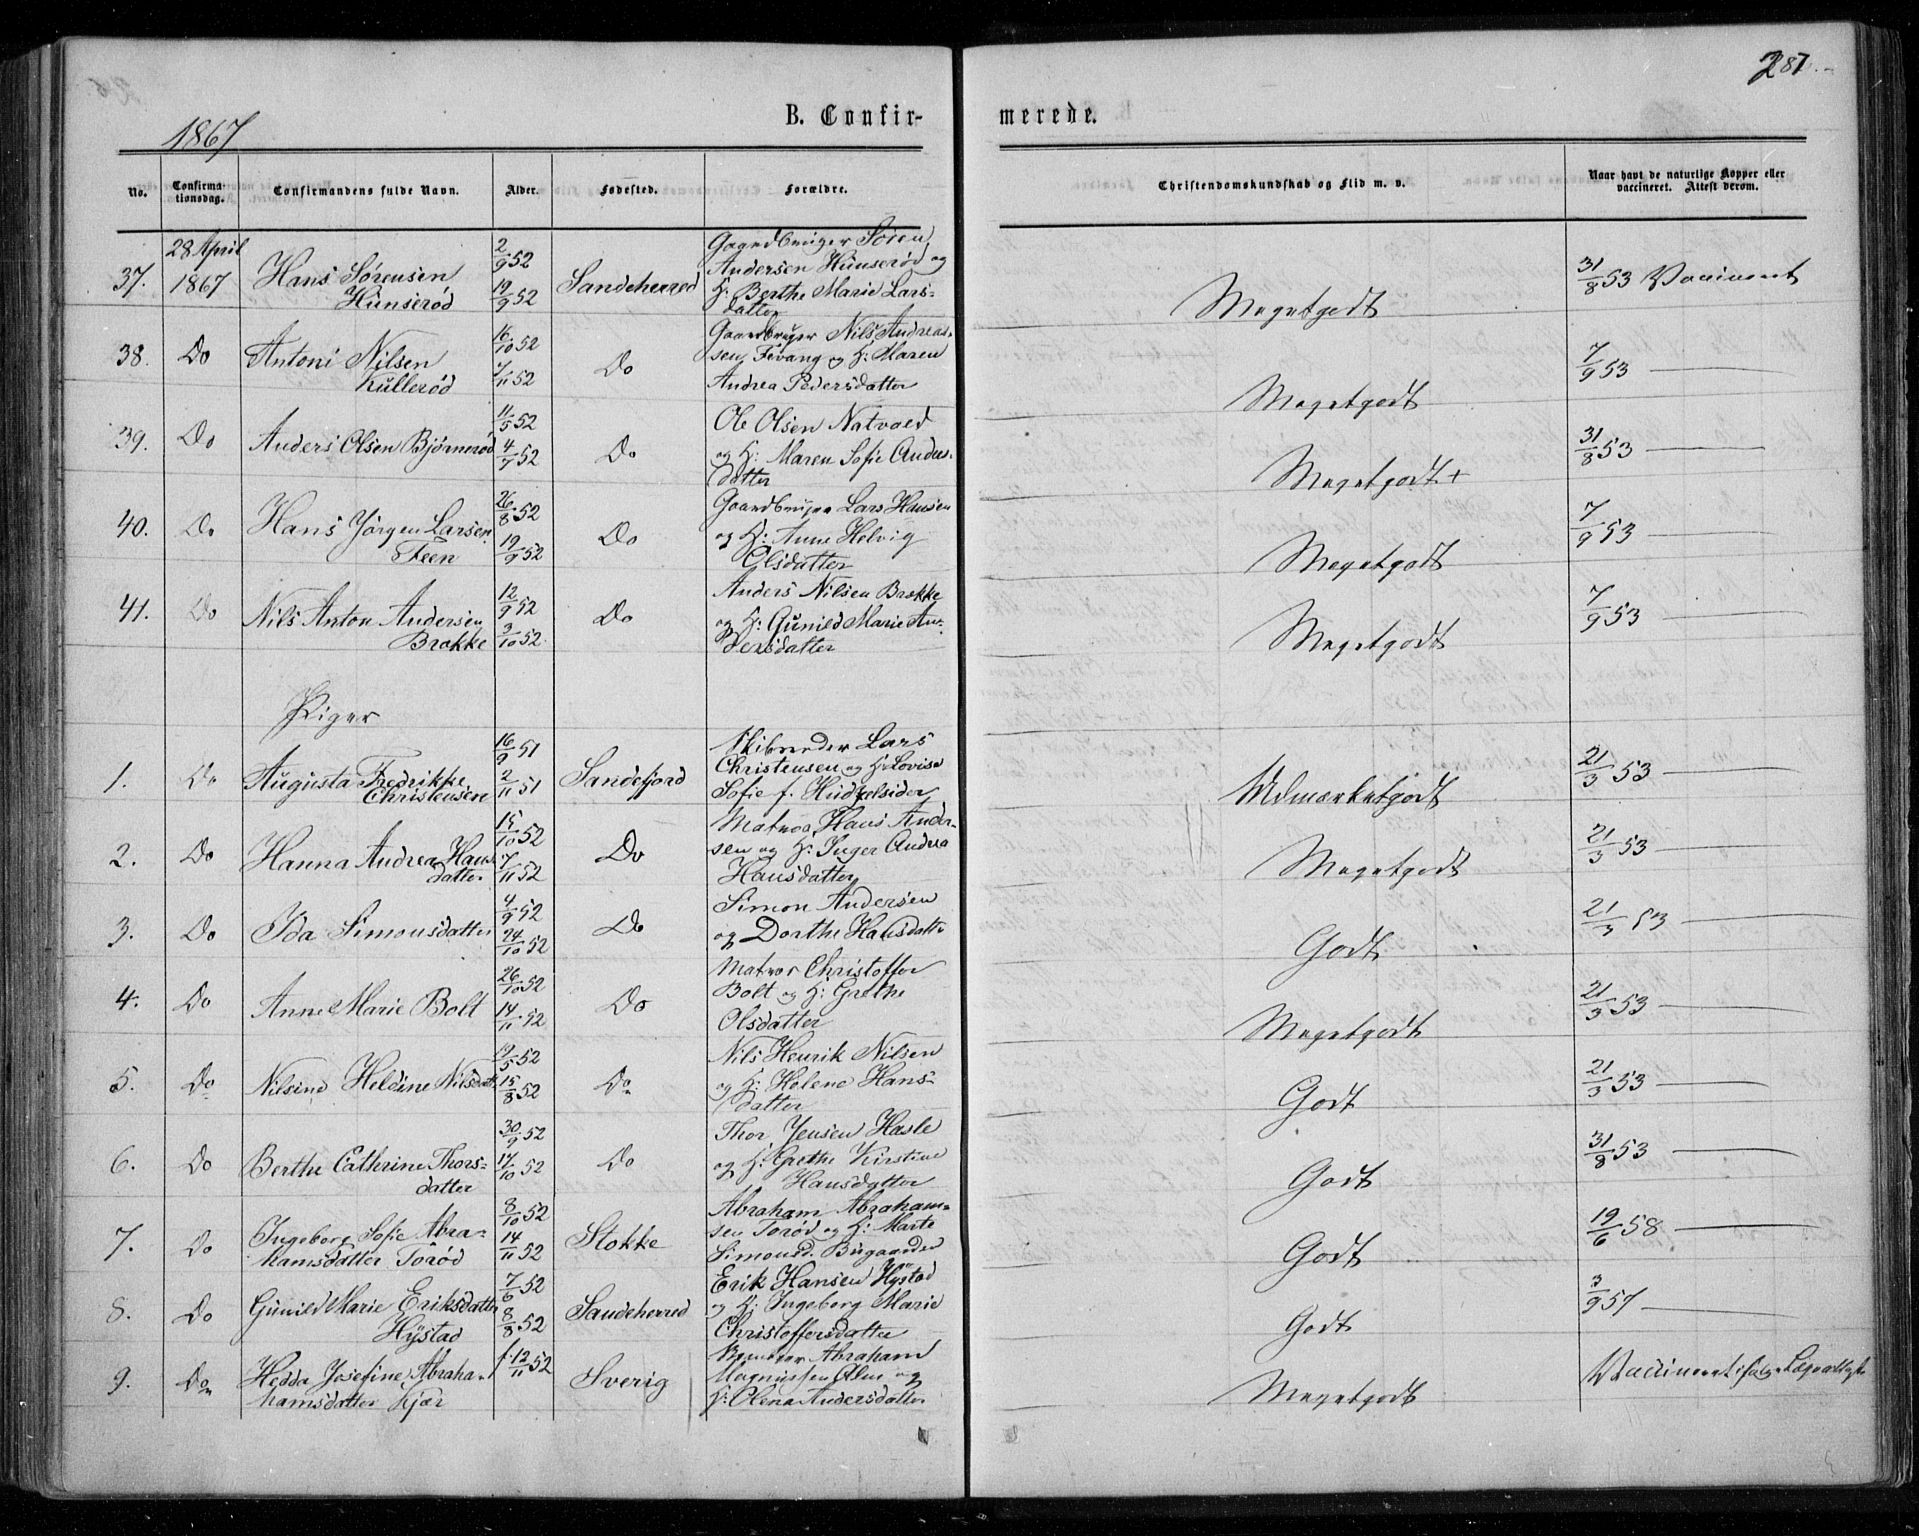 287
1867
B. Confir-
merede.
No.
Confirma-
tionsdag.
Confirmandens fulde Navn.
Alder.
Fødested.
Forældre.
Christendomskundskab og Flid m. v.
Naar havt de naturlige Kopper eller
vaccineret. Attest derom.
37. 28 April 1867 Hans Sørensen Hunserød 2/9 52 19/9 52 Sandeherred Gaardbruger Søren
Andersen Hunserød og
H: Berthe Marie Lars-
datter
Megetgodt 31/8 53 Vaccineret
38. Do Antoni Nilsen Kullerød 16/10 52 7/11 52 Do Gaardbruger Nils Andreas-
sen Fevang og H: Maren
Andrea Pedersdatter
Megetgodt 7/9 53
39. Do Anders Olsen Bjørnerød 11/5 52 4/7 52 Do Ole Olsen Natvold
og H: Maren Sofie Anders-
datter
Megetgodt + 31/8 53
40. Do Hans Jørgen Larsen Feen 26/8 52 19/9 52 Do Gaardbruger Lars Hansen
og H: Anne Helvig
Olsdatter
Megetgodt 7/9 53
41. Do Nils Anton Andersen Brække 12/9 52 3/10 52 Do Anders Nilsen Brække
og H: Gunild Marie An-
dersdatter
Megetgodt 7/9 53
Piger
1. Do Augusta Fredrikke Christensen 16/9 51 2/11 51 Sandefjord Skibsreder Lars
Christensen og H: Lovise
Sofie f.
Udmærketgodt 21/3 53
2. Do Hanna Andrea Hans-
datter 15/10 52 7/11 52 Do Matros Hans Ander-
sen og H: Inger Andrea
Hansdatter
Megetgodt 21/3 53
3. Do Ida Simonsdatter 4/9 52 24/10 52 Do Simon Andersen
og Dorthe Hansdatter
Godt 21/3 53
4. Do Anne Marie Bolt 26/10 52 14/11 52 Do Matros Christoffer
Bolt og H: Grethe
Olsdatter
Megetgodt 21/3 53
5. Do Nilsine Heldine Nilsdatt. 19/5 52 15/8 52 Do Nils Henrik Nilsen
og H: Helene Hans-
datter
Godt 21/3 53
6. Do Berthe Cathrine Thors-
datter 30/9 52 17/10 52 Do Thor Jensen Hasle
og H: Grethe Kirstine
Hansdatter
Godt 31/8 53
7. Do Ingeborg Sofie Abra-
hamsdatter Torød 8/10 52 14/11 52 Stokke Abraham Abraham-
sen Torød og H: Marte
Simonsd. Bugaarden
Godt 19/6 58
8. Do Gunild Marie Eriksdatter
Hystad 7/6 52 8/8 52 Sandeherred Erik Hansen Hystad
og H: Ingeborg Marie
Christoffersdatter
Godt 3/9 57
9. Do Hedda Josefine Abraha-
hamsdatter Kjær f. 12/11 52 Sverig Abraham
Magnussen Alm og
H: Olena Andersdatter
Megetgodt Vaccineret ifølge Lægeattest